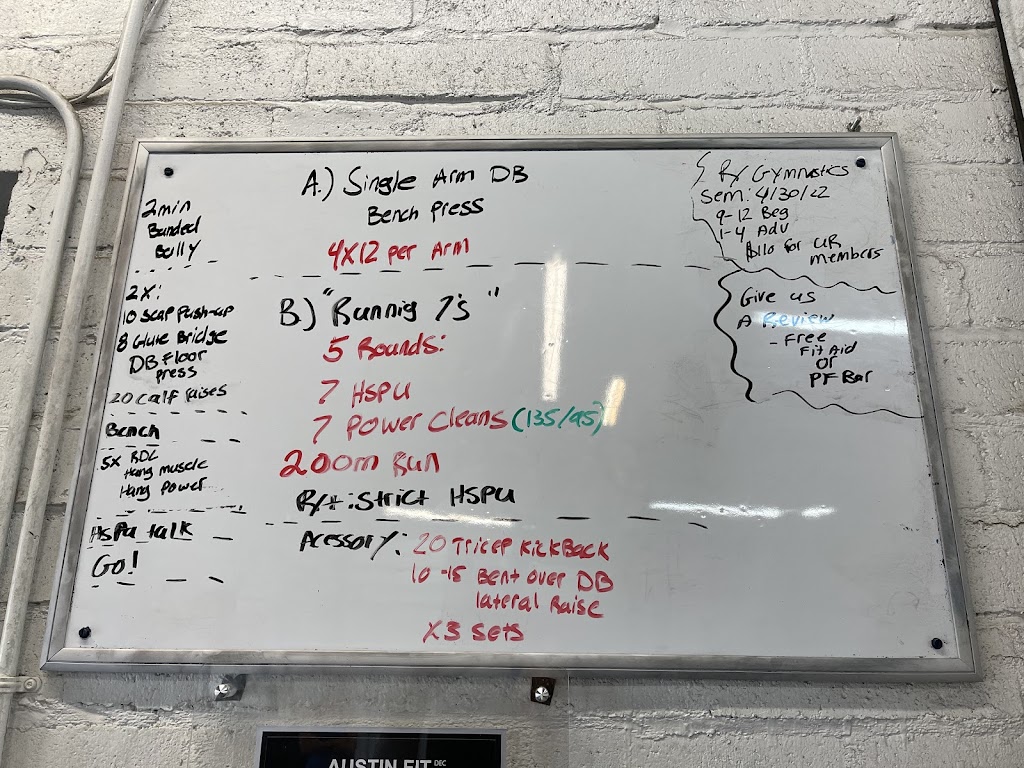 2min
Banded
Bully
2x:
10 Scap Push-up
8 Glute Bridge
DB Floor
Press
20 Calf Raises
Bench
5x RDL
Hang muscle
Hang Power
HSPU talk
Go!
A.) Single Arm DB
Bench Press
4X12 per Arm
B.) "Runnig 7's"
5 Rounds:
7 HSPU
7 Power Cleans (135/95)
200m Run
Rx+: Strict HSPU
Acessory: 20 Tricep KickBack
10-15 Bent over DB
lateral Raise
X3 Sets
Rx Gymnastics
Sem: 4/30/22
9-12 Beg
1-4 Adv
$110 for UR
members
Give us
A Review
- Free
Fit Aid
or
PF Bar
AUSTIN FIT DEC